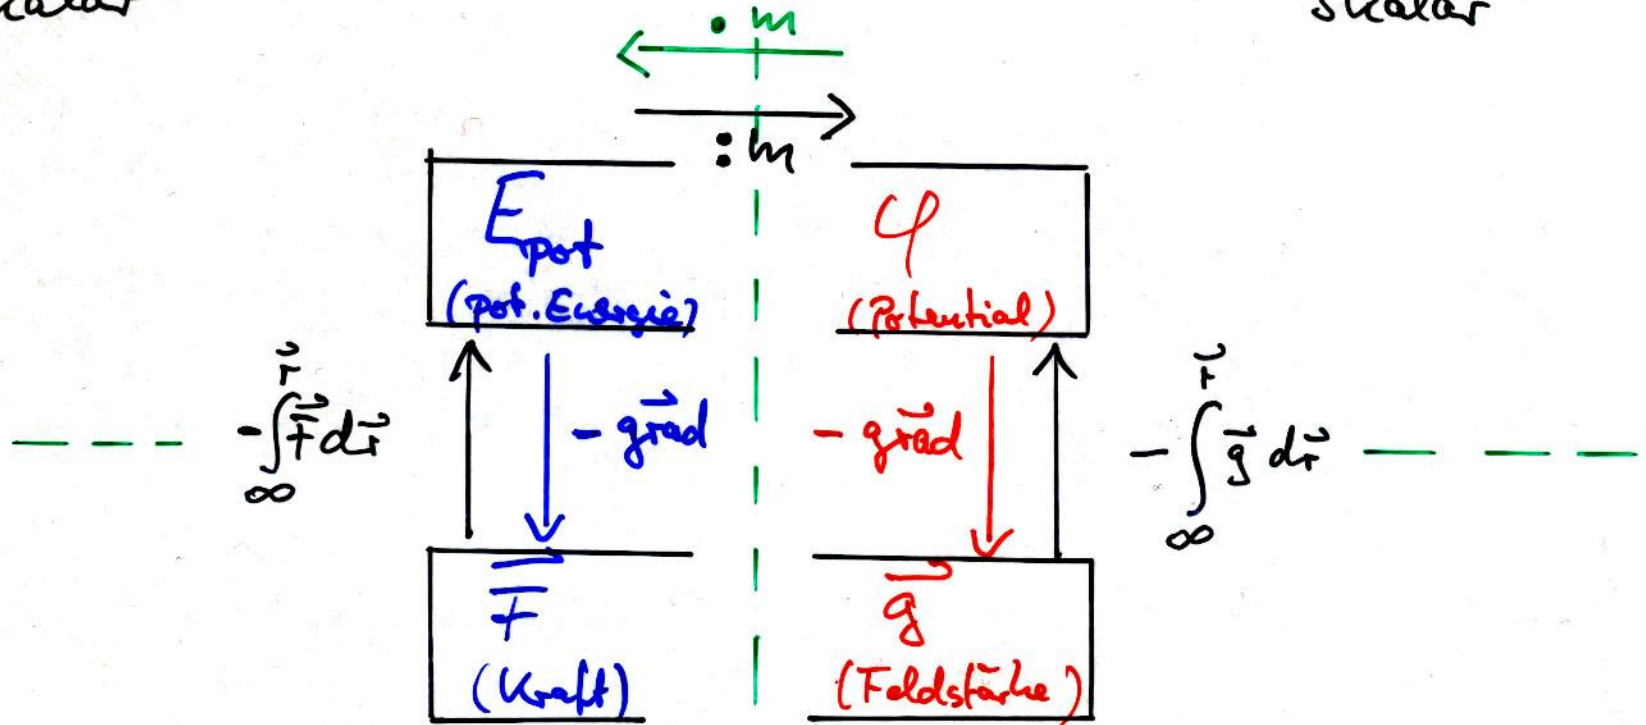 skalar
· m
: m
E_pot φ
(pot. Energie) (Potential)
-∫_∞^r⃗ F⃗ dr⃗ - gr⃗ad - gr⃗ad -∫_∞^r⃗ g⃗ dr⃗
F⃗ g⃗
(Kraft) (Feldstärke)